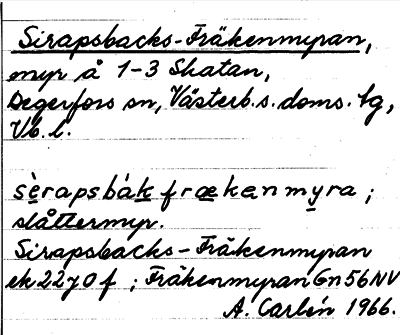 Sirapsbacks-Fräkenmyran,
myr å 1-3 Skatan,
Degerfors sn, Västerb.s.doms.lg,
Vb.l.
sèrapsbákfrækenmyra ;
slåttermyr.
Sirapsbacks-Fräkenmyran
ek 22 7 0 f ; Fräkenmyran Gn 56 NV
A. Carlén 1966.